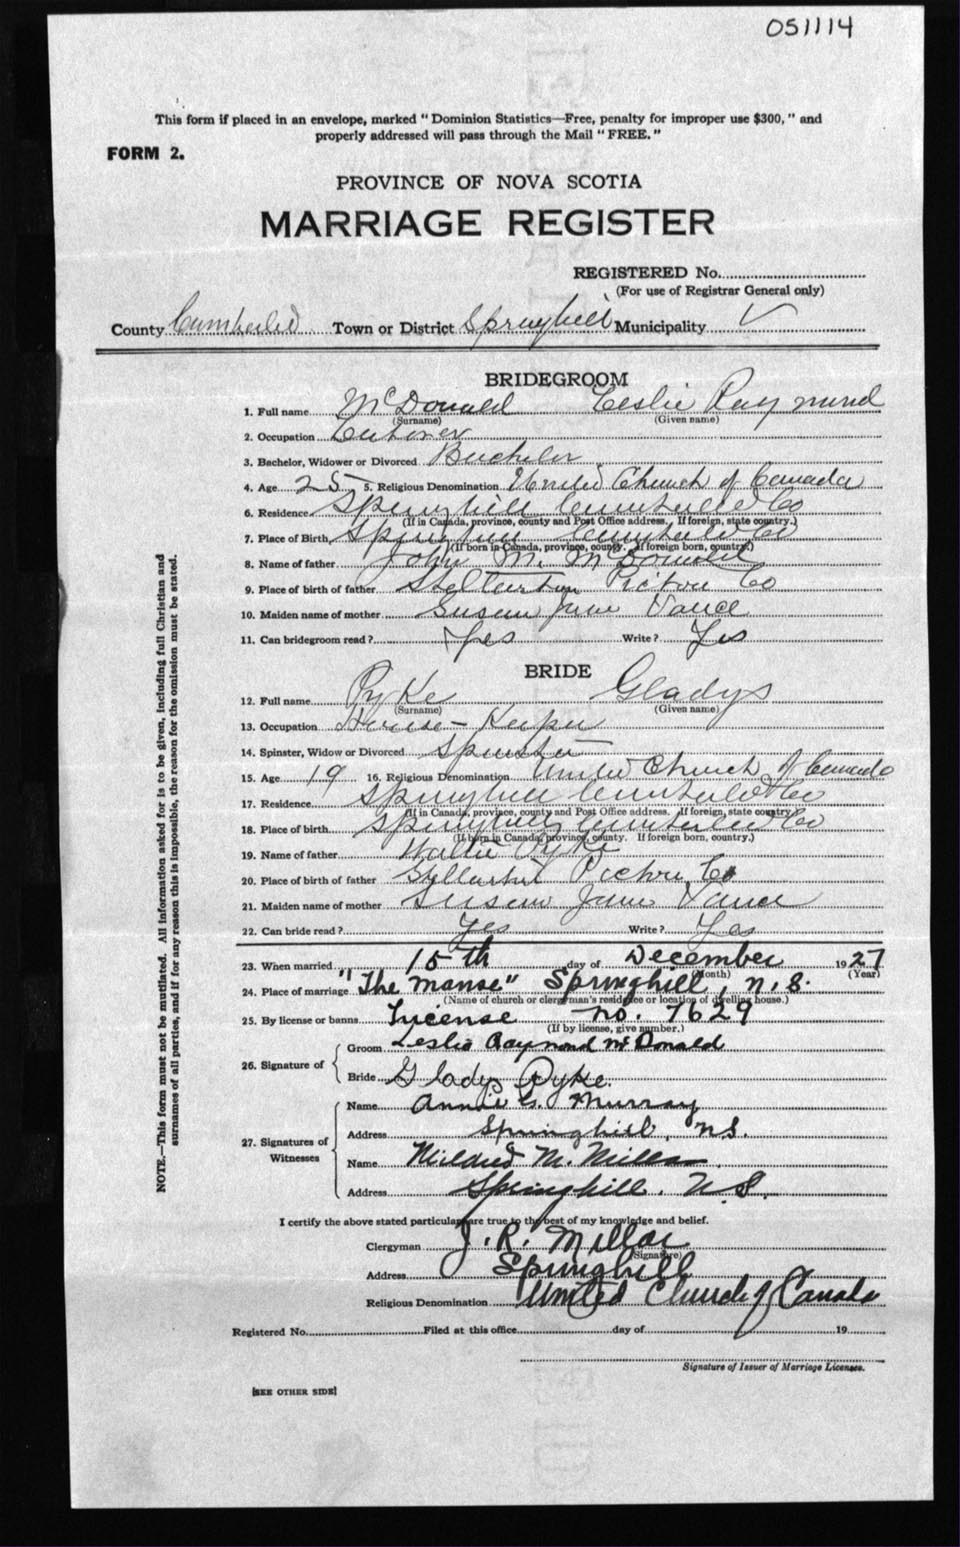 051114
This form if placed in an envelope, marked "Dominion Statistics—Free, penalty for improper use $300," and
properly addressed will pass through the Mail "FREE."
FORM 2.
PROVINCE OF NOVA SCOTIA
MARRIAGE REGISTER
REGISTERED No.
(For use of Registrar General only)
County Cumberland Town or District Springhill Municipality ✓
BRIDEGROOM
1. Full name McDonald Leslie Raymond
(Surname) (Given name)
2. Occupation
3. Bachelor, Widower or Divorced Bachelor
4. Age 25 5. Religious Denomination United Church of Canada
6. Residence Springhill Cumberland Co
(If in Canada, province, county and Post Office address. If foreign, state country.)
7. Place of Birth Springhill Cumberland Co
(If born in Canada, province, county. If foreign born, country.)
8. Name of father John M. McDonald
9. Place of birth of father Stellarton Pictou Co
10. Maiden name of mother Susan Jane Vance
11. Can bridegroom read? Yes Write? Yes
BRIDE
12. Full name Pyke Gladys
(Surname) (Given name)
13. Occupation House-Keeper
14. Spinster, Widow or Divorced Spinster
15. Age 19 16. Religious Denomination United Church of Canada
17. Residence Springhill Cumberland Co
(If in Canada, province, county and Post Office address. If foreign, state country.)
18. Place of birth Springhill Cumberland Co
(If born in Canada, province, county. If foreign born, country.)
19. Name of father Pyke
20. Place of birth of father Pictou Co
21. Maiden name of mother Susan Jane Vance
22. Can bride read? Yes Write? Yes
23. When married 15th day of December 1927
(Month) (Year)
24. Place of marriage "The Manse" Springhill, N.S.
(Name of church or clergyman's residence or location of dwelling house.)
25. By license or banns License no. 7629
(If by license, give number.)
26. Signature of
Groom Leslie Raymond McDonald
Bride Gladys Pyke.
27. Signatures of Witnesses
Name Annie G. Murray
Address Springhill, N.S.
Name Mildred M. Millar
Address Springhill, N.S.
I certify the above stated particulars are true to the best of my knowledge and belief.
Clergyman J. R. Millar
(Signature)
Address Springhill
Religious Denomination United Church of Canada
Registered No. Filed at this office day of 19
Signature of Issuer of Marriage Licenses.
[SEE OTHER SIDE]
NOTE.—This form must not be mutilated. All information asked for is to be given, including full Christian and
surnames of all parties, and if for any reason this is impossible, the reason for the omission must be stated.